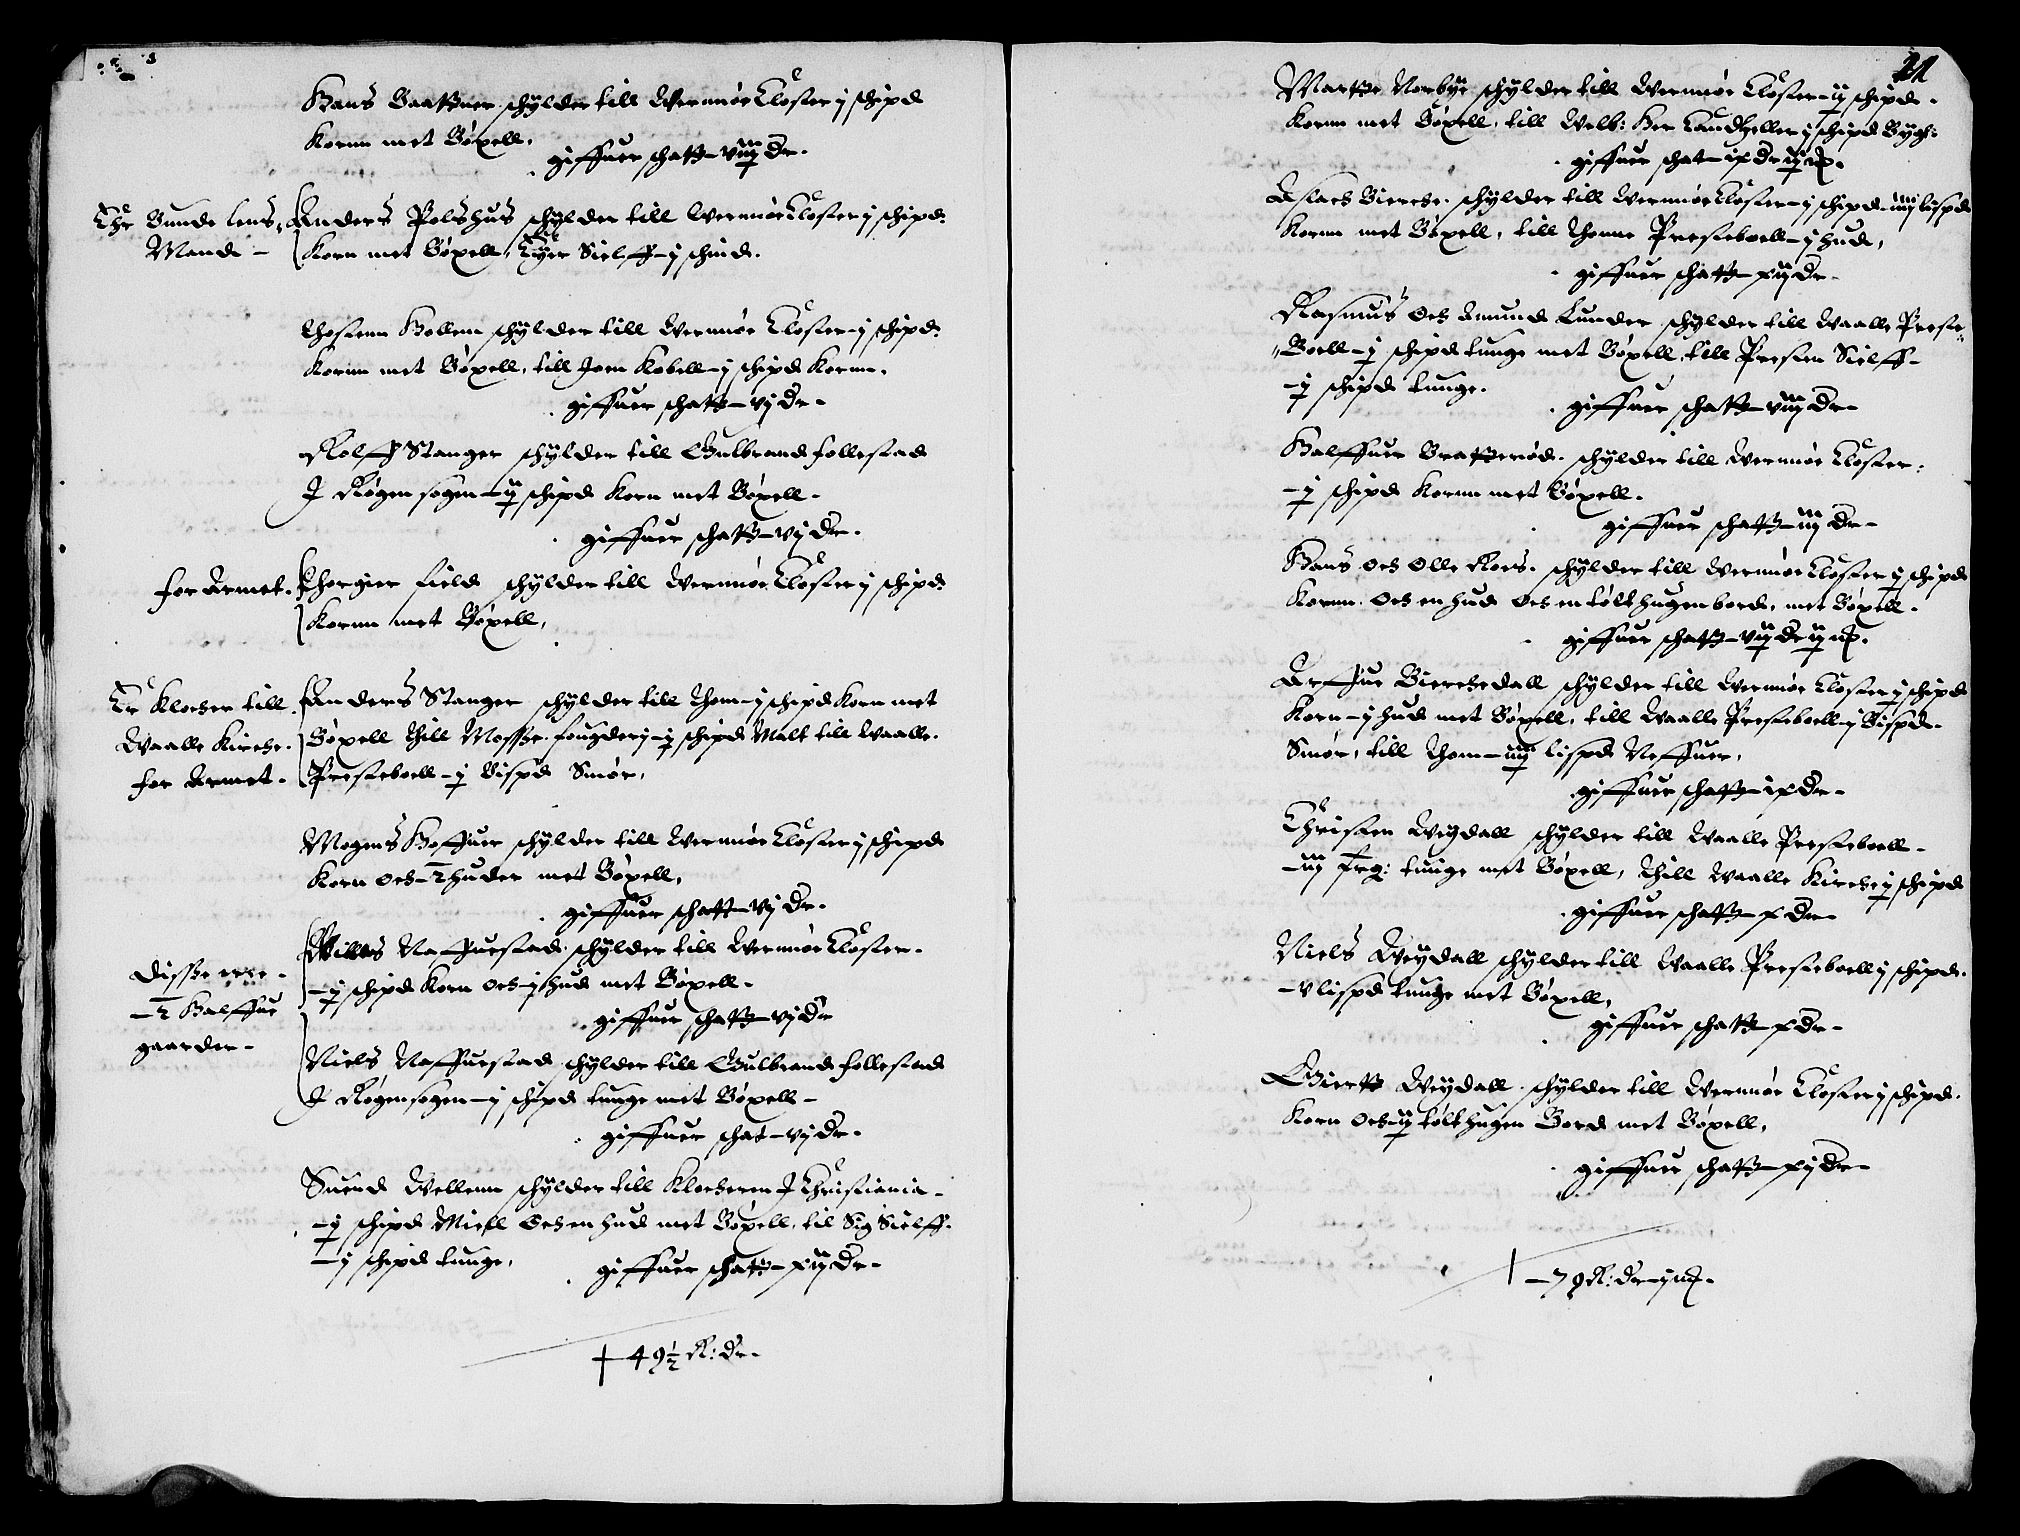 Hans Baatzuer schylder till Vernnør Closter j schipd
Kornn met Bøxell,
giffuer schatt – viij Dr.
Er Bunde lens,
Mand –
Anders Polshus schylder till Vernnør Closter j schipd:
Korn met Bøxell, Eyer Sielff – j schind.
Thostenn Hollenn schylder till Vernnør Closter – j schipd:
Kornn met Bøxell, till Jenn Kobell – j schipd Kornn.
giffuer schatt – vj Dr –
Rolff Stanger schylder till Gulbrand follestad
J Røgen sogen – ij schipd Korn met Bøxell –
giffuer schatt – vj Dr –
for Armet.
Thorgier field schylder till Vernnør Closter j schipd:
Kornn met Bøxell,
Er Klocker till
Waalle Kircke.
for Armet –
Anders Stanger schylder till Thom – j schipd Korn met
Bøxell Thill Mosse fougderj – j schipd Malt till Waalle.
Presteboell – j Bispd Smør,
Mogens Hoffuer schylder till Vernnør Closter j schipd
Korn och – ½ huder met Bøxell,
giffuer schatt – vj Dr –
Disse ere –
– ½ Halffue
gaarder –
Nilles Naffuestad schylder till Vernnør Closter –
– j schipd Korn och – j hud met Bøxell –
giffuer schatt – vj Dr
Niels Naffuestad schylder till Gulbrand follestad
J Røgen sogen – j schipd tunge met Bøxell –
giffuer schat – vj Dr –
Suend Vellenn schylder till Klockerenn J Christiania –
– j schipd Miell och en hud met Bøxell, til Sig Sielff.
– j schipd tunge,
giffuer schatt – xij Dr –
49½ R: Dr –
21
Marthe Norbye schylder till Vernnør Closter – ij schipd –
Kornn met Bøxell, till Velb: Her Landheller j schipd Bygh:
giffuer schat – ix Dr ij mk.
Aslach Biercke. schylder till Vernnør Closter – j schipd – iiij lispd
Kornn met Bøxell, till Thenne Presteboell – j hud,
giffuer schatt – xij Dr –
Rasmus och Amund Lunder schylder till Waalle Preste
Boell – j schipd tunge met Bøxell, till Presten Sielff –
– j schipd tunge.
giffuer schatt – viij Dr –
Halffuer Bratterød. schylder till Vernnør Closter:
– j schipd Kornn met Bøxell.
giffuer schatt – iij Dr –
Hans och Olle Roes. schylder till Vernnør Closter j schipd
Kornn. och en hud och en tølt hugenbord, met Bøxell –
giffuer schatt – vij Dr ij mk.
Arffue Bierchedall schylder till Vernnør Closter j schipd
Korn – j hud met Bøxell, till Waalle Presteboell – j Bispd –
Smør, till Thom – iij lispd Neffuer,
giffuer schatt – ix Dr –
Christen Weydall schylder till Waalle Presteboell –
– iij frg: tunge met Bøxell, Thill Waalle Kircke j schipd
giffuer schatt – x Dr –
Niels Weydall schylder till Waalle Presteboell j schipd.
– v lispd tunge met Bøxell,
giffuer schatt – x Dr –
Giertt Weydall. schylder till Vernnør Closter j schipd.
Korn och – ij tølt hugen Bord met Bøxell,
giffuer schatt – xj Dr –
– 79 R: Dr – j mk –